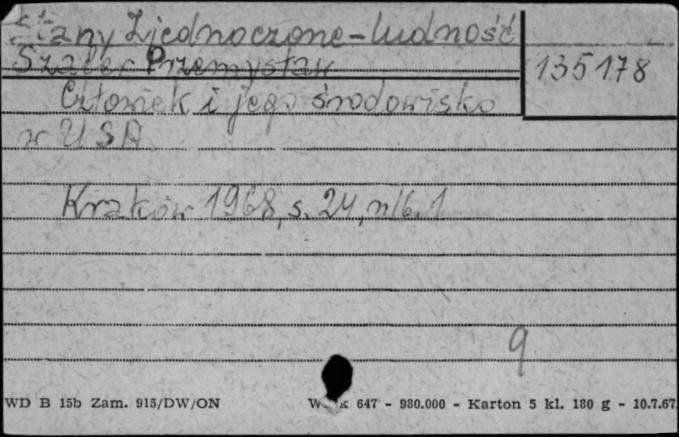 Stany Zjednoczone - ludność
Szafer Przemysław
135178
Człowiek i jego środowisko
w USA
Kraków 1968, s. 24, nlb. 1
9
WD B 15b Zam. 915/DW/ON
647 - 980.000 - Karton 5 kl. 180 g - 10.7.67.